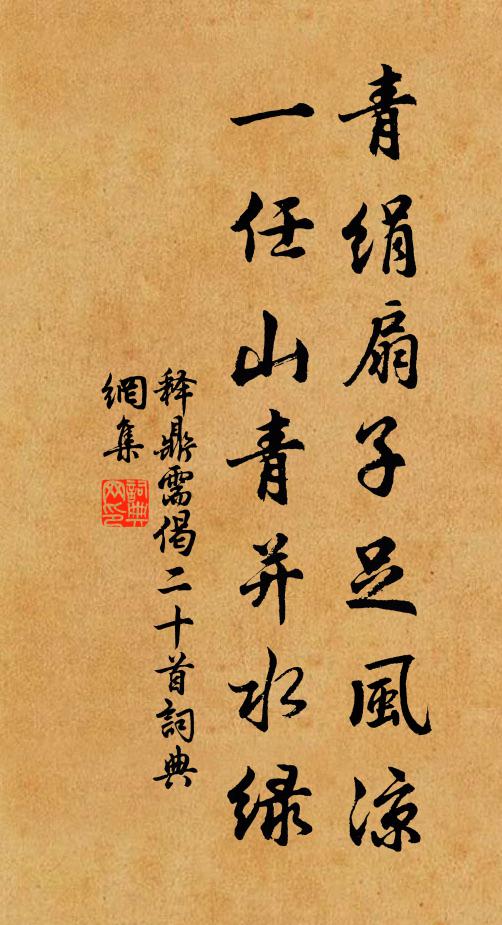 青絹扇子足風涼
一任山青并水緑
释鼎需偈二十首詞典
網集
詞典
网印